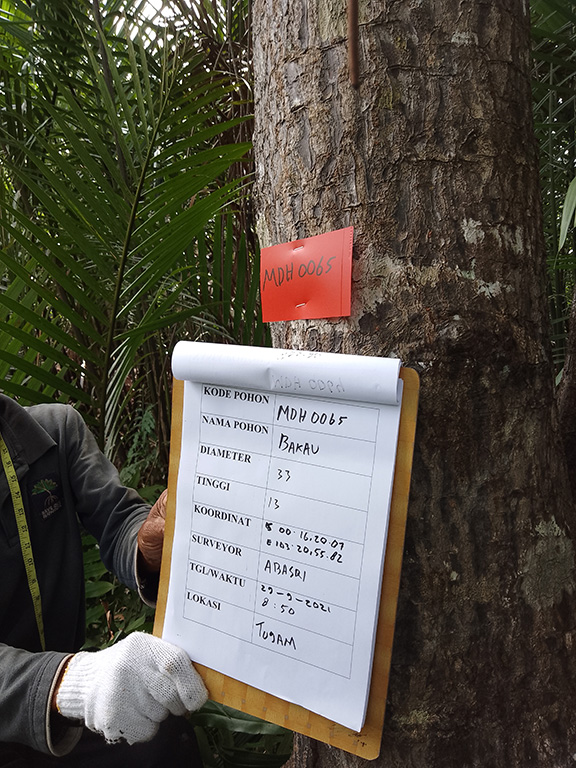 MDH 0065
KODE POHON MDH 0065
NAMA POHON BAKAU
DIAMETER 33
TINGGI 13
KOORDINAT S 00.16.20.07
E 103.20.55.82
SURVEYOR ABASRI
TGL/WAKTU 29-9-2021
8:50
LOKASI TUGAM